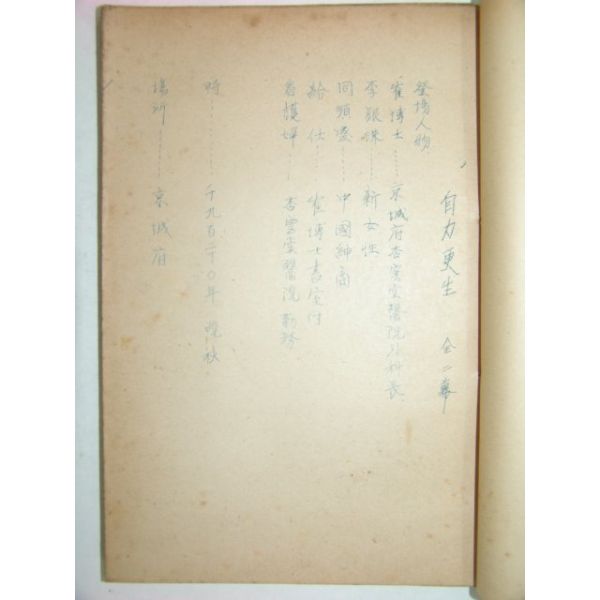 自力更生 全二幕
登場人物
崔博士……京城府杏雲堂醫院外科長
李銀珠……新女性
周順凌……中國紳商
給仕 崔博士書室付
看護婦… 杏雲堂醫院勤務
時………千九百二十〇年 晩秋
場所……京城府